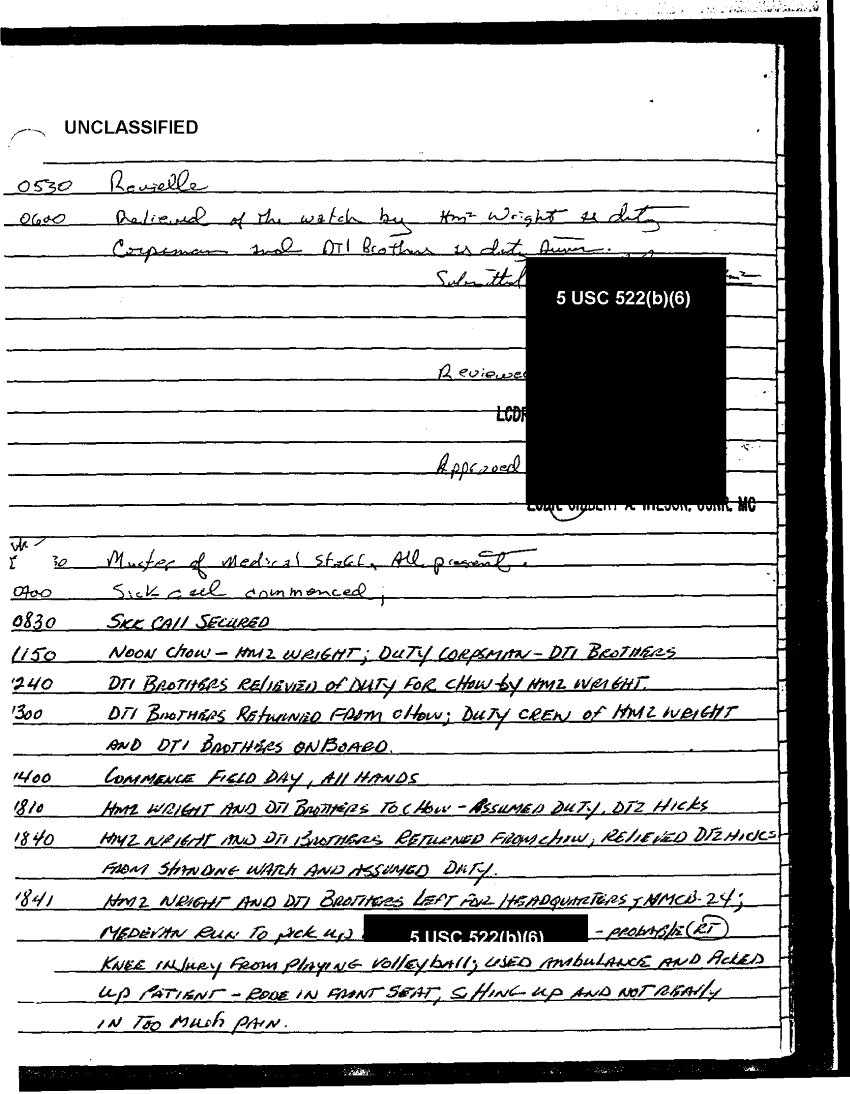 UNCLASSIFIED
0530 Revielle
0600 Relieved of the watch by Hm2 Wright as duty
Corpsman and DT1 Brothers as duty Driver.
Submitted
5 USC 522(b)(6)
Reviewed
LCDR
Approved
WILSON, USNR, MC
30 Muster of Medical Staff. All present.
0700 Sick call commenced;
0830 SICK CALL SECURED
1150 NOON CHOW - HM2 WRIGHT; DUTY CORPSMAN - DT1 BROTHERS
1240 DT1 BROTHERS RELIEVED OF DUTY FOR CHOW BY HM2 WRIGHT.
1300 DT1 BROTHERS RETURNED FROM CHOW; DUTY CREW OF HM2 WRIGHT
AND DT1 BROTHERS ONBOARD.
1400 COMMENCE FIELD DAY, ALL HANDS
1810 HM2 WRIGHT AND DT1 BROTHERS TO CHOW - ASSUMED DUTY, DT2 HICKS
1840 HM2 WRIGHT AND DT1 BROTHERS RETURNED FROM CHOW, RELIEVED DT2 HICKS
FROM STANDING WATCH AND ASSUMED DUTY.
1841 HM2 WRIGHT AND DT1 BROTHERS LEFT FOR HEADQUARTERS, NMCB-24;
MEDEVAN RUN TO PICK UP 5 USC 522(b)(6) - PROBABLE RT
KNEE INJURY FROM PLAYING VOLLEYBALL; USED AMBULANCE AND PICKED
UP PATIENT - RODE IN FRONT SEAT, SITTING UP AND NOT REALLY
IN TOO MUCH PAIN.